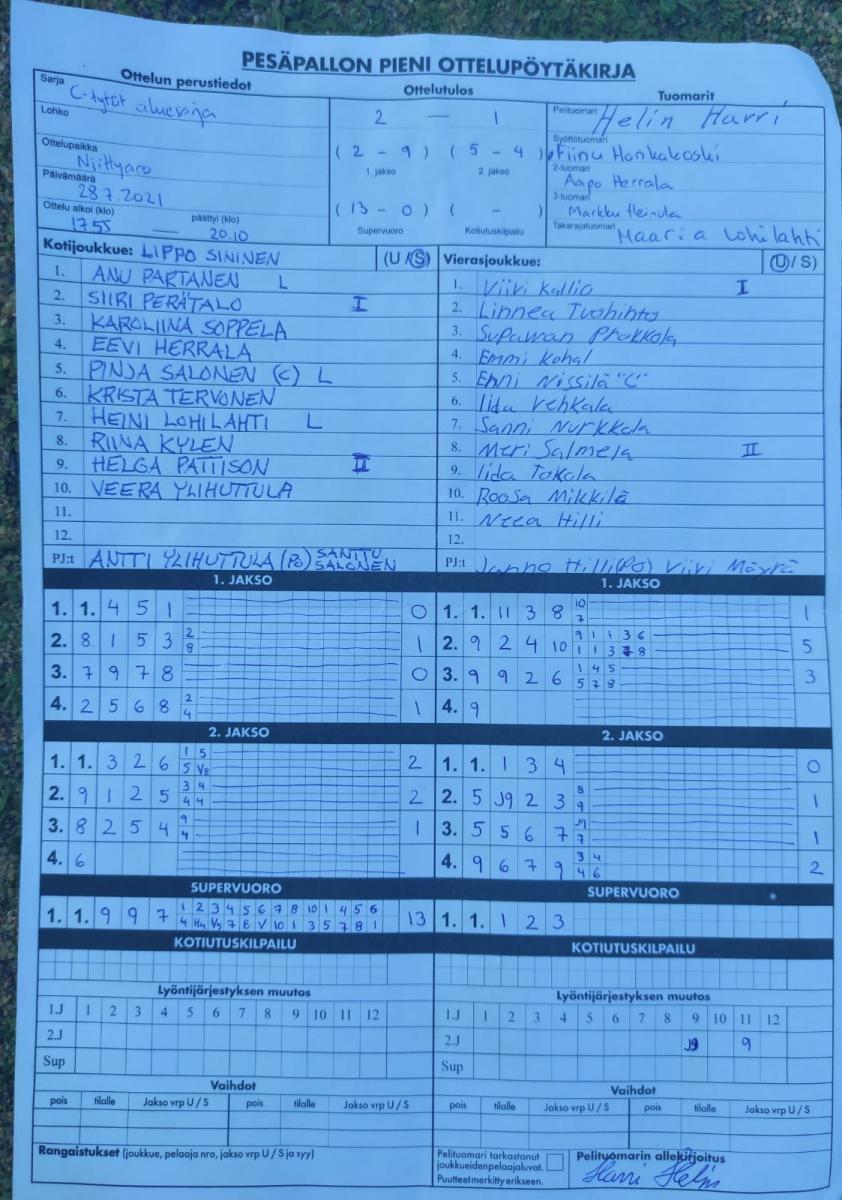 PESÄPALLON PIENI OTTELUPÖYTÄKIRJA
Ottelun perustiedot
Sarja
C-tytöt aluesarja
Lohko
Ottelupaikka
Niittyaro
Päivämäärä
28.7.2021
Ottelu alkoi (klo) päättyi (klo)
1755 — 20.10
Ottelutulos
2 — 1
( 2 - 9 ) ( 5 - 4 )
1. jakso 2. jakso
( 13 - 0 ) ( - )
Supervuoro Kotiutuskilpailu
Tuomarit
Pelituomari
Helin Harri
Syöttötuomari
Tiinu Honkakoski
2-tuomari
Aapo Herrala
3-tuomari
Markku Heinola
Takarajatuomari
Maaria Lohilahti
Kotijoukkue: LIPPO SININEN (U / S)
1. ANU PARTANEN L
2. SIIRI PERÄTALO I
3. KAROLIINA SOPPELA
4. EEVI HERRALA
5. PINJA SALONEN (C) L
6. KRISTA TERVONEN
7. HEINI LOHILAHTI L
8. RIINA KYLEN
9. HELGA PATTISON II
10. VEERA YLIHUTTULA
11.
12.
PJ:t ANTTI YLIHUTTULA (PO) SANTTU SALONEN
Vierasjoukkue: (U / S)
1. Viivi Kallio I
2. Linnea Tuohinto
3. Supawan Prokkola
4. Emmi Kohal
5. Enni Nissilä "C"
6. Iida Vehkala
7. Sanni Nurkkala
8. Meri Salmela II
9. Iida Tokola
10. Roosa Mikkilä
11. Neea Hilli
12.
PJ:t Janno Hilli (PO) Viivi Mäyrä
1. JAKSO
1. 1. 4 5 1 0
2. 8 1 5 3 2 1
8
3. 7 9 7 8 0
4. 2 5 6 8 2 1
4
2. JAKSO
1. 1. 3 2 6 1 5 2
5 V2
2. 9 1 2 5 3 4 2
4 4
3. 8 2 5 4 9 1
4
4. 6
SUPERVUORO
1. 1. 9 9 7 1 2 3 4 5 6 7 8 10 1 4 5 6 13
4 H4 V3 7 8 V 10 1 3 5 7 8 1
KOTIUTUSKILPAILU
1. JAKSO
1. 1. 11 3 8 10 1
7
2. 9 2 4 10 9 1 1 3 6 5
1 1 3 7 8
3. 9 9 2 6 1 4 5 3
5 7 8
4. 9
2. JAKSO
1. 1. 1 3 4 0
2. 5 J9 2 3 8 1
9
3. 5 5 6 7 J9 1
7
4. 9 6 7 9 3 4 2
4 6
SUPERVUORO
1. 1. 1 2 3
KOTIUTUSKILPAILU
Lyöntijärjestyksen muutos
1.J 1 2 3 4 5 6 7 8 9 10 11 12
2.J
Sup
Vaihdot
pois tilalle Jakso vrp U / S pois tilalle Jakso vrp U / S
Lyöntijärjestyksen muutos
1.J 1 2 3 4 5 6 7 8 9 10 11 12
2.J J9 9
Sup
Vaihdot
pois tilalle Jakso vrp U / S pois tilalle Jakso vrp U / S
Rangaistukset (joukkue, pelaaja nro, jakso vrp U / S ja syy)
Pelituomari tarkastanut
joukkueiden pelaajaluvat.
Puutteet merkitty erikseen.
Pelituomarin allekirjoitus
Harri Helin